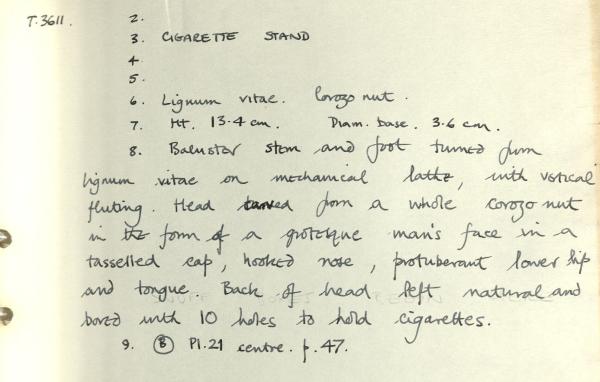 T.3611.
2.
3. CIGARETTE STAND
4.
5.
6. Lignum vitae. Corozo nut.
7. Ht. 13.4 cm. Diam. base. 3.6 cm.
8. Baluster stem and foot turned from
lignum vitae on mechanical lathe, with vertical
fluting. Head carved from a whole corozo nut
in the form of a grotesque man's face in a
tasselled cap, hooked nose, protuberant lower lip
and tongue. Back of head left natural and
bored with 10 holes to hold cigarettes.
9. B Pl.21 centre. p.47.